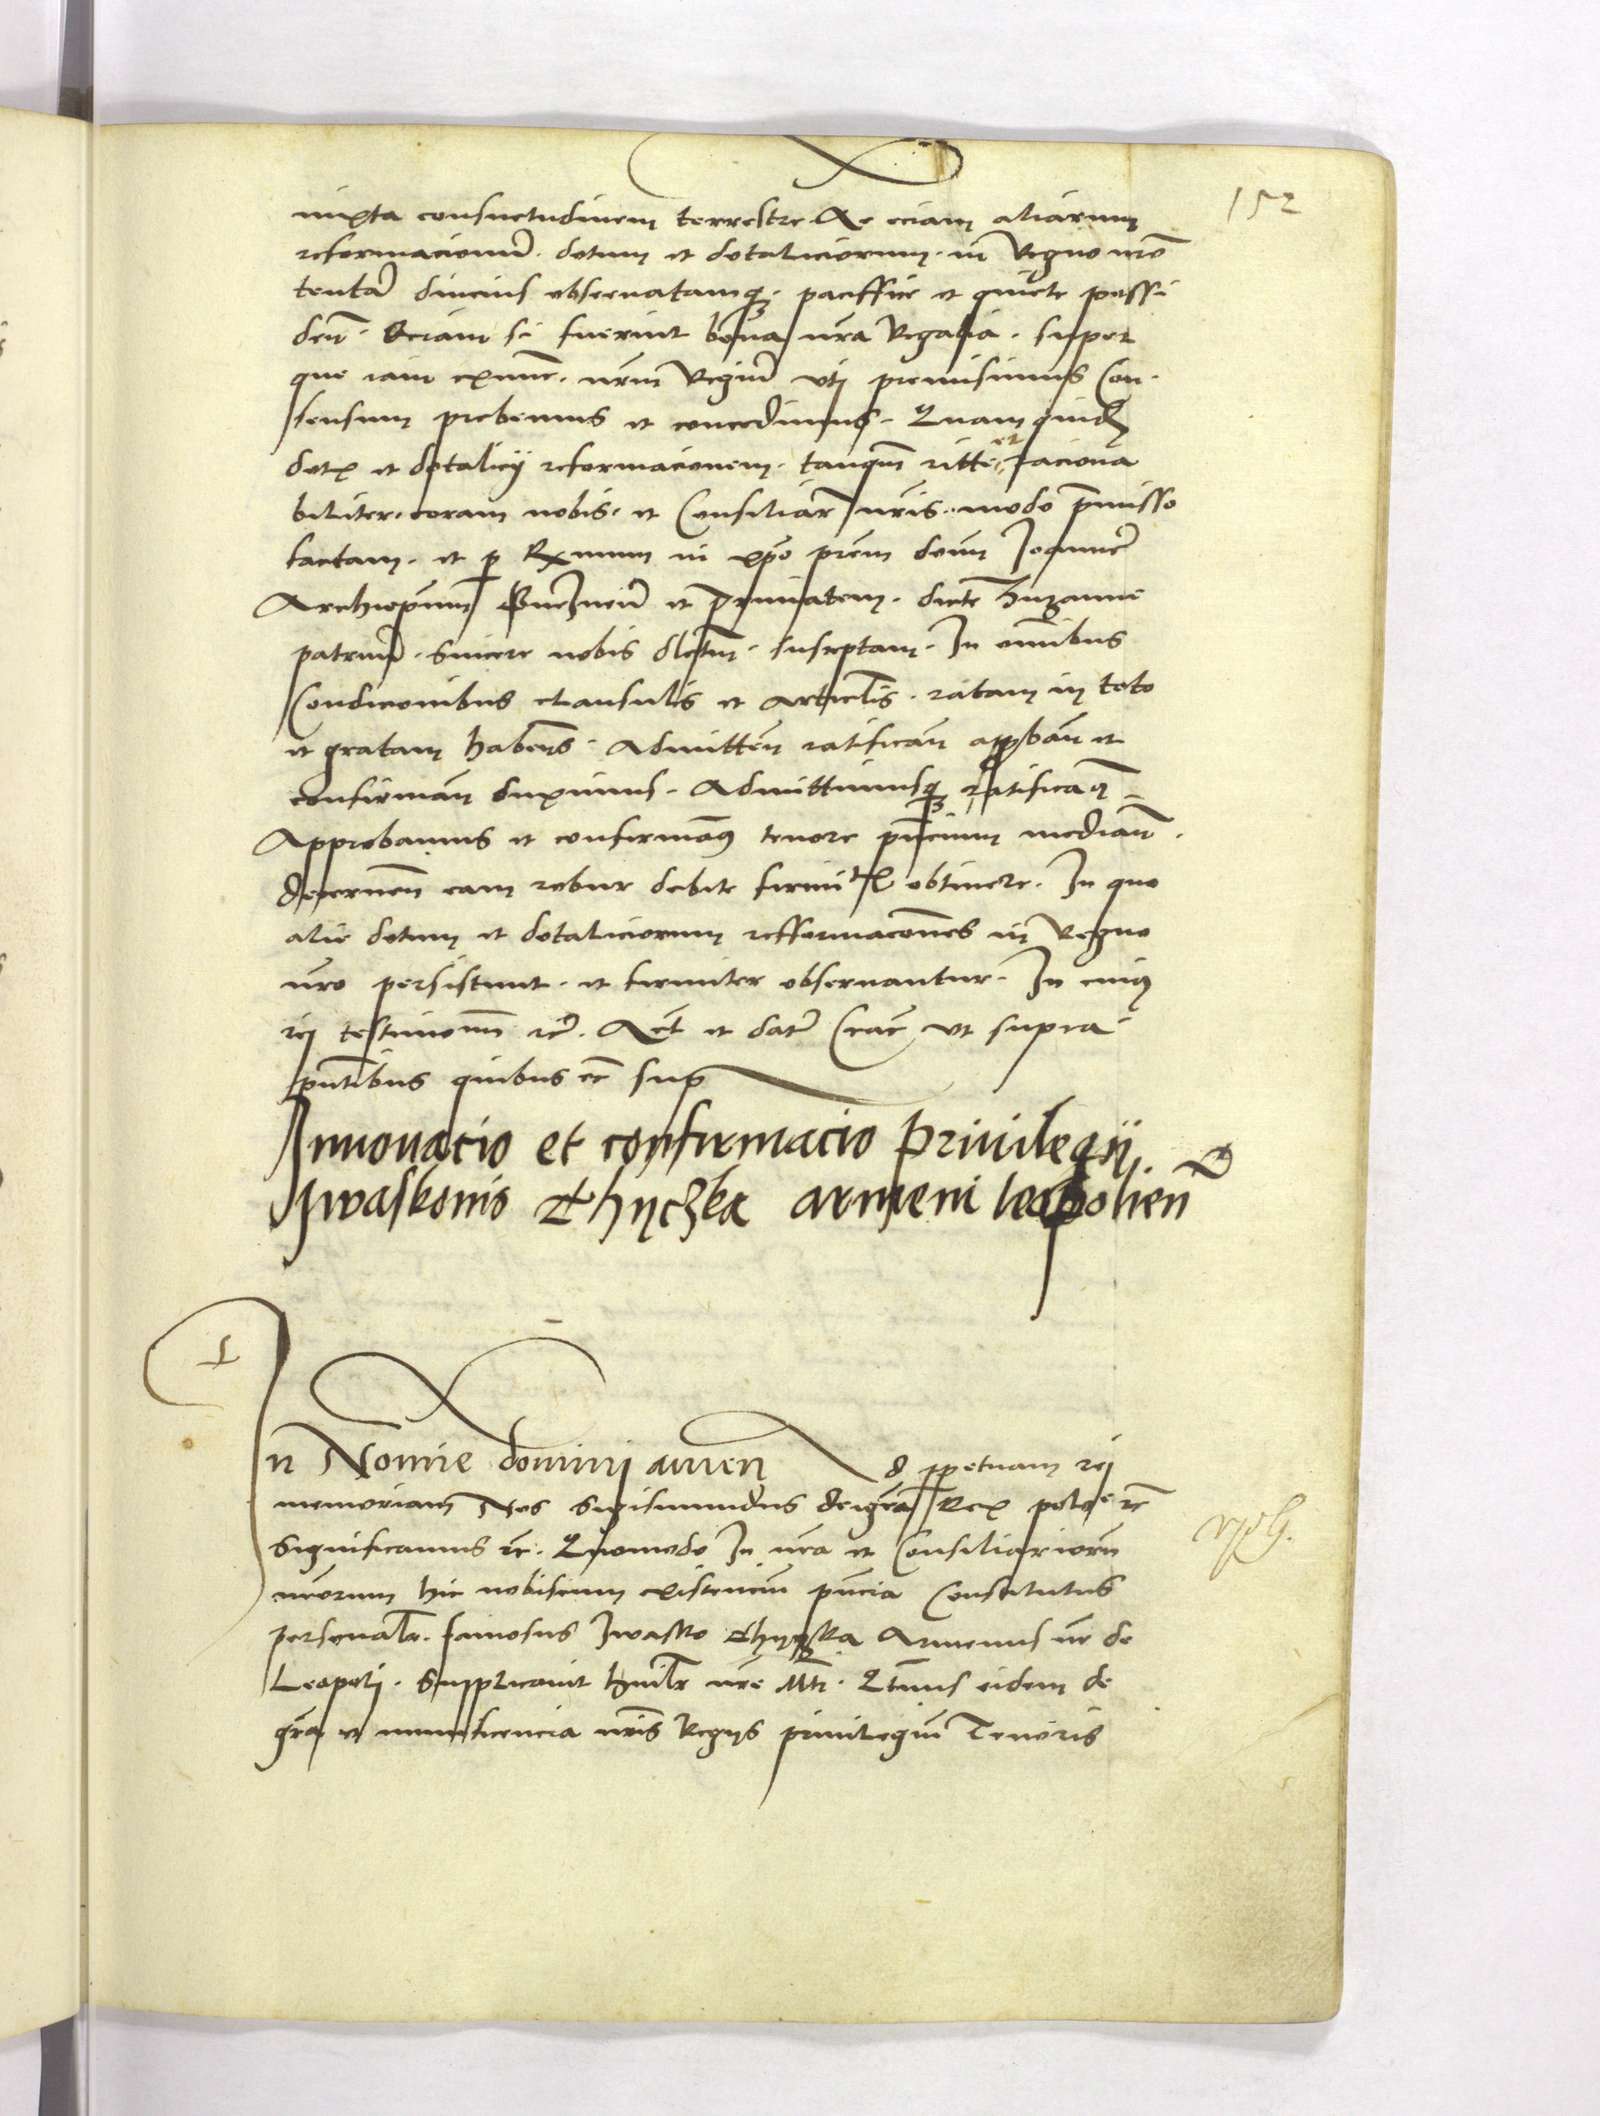 152
iuxta consuetudinem terrestrē Ac eciam aliarum
reformacionū dotum et dotaliciorum in Regno nrō
tentā diucius obseruatamq3 paciffice et quiete possi
den̄ Eciam si fuerint bona nr̄a Regalia super
que iam exnunc nr̄m Regiū vti premisimus Con-
sensum prebemus et concedimus Quam quid
dotē et dotalicij reformacionem tanqm̄ ritte et raciona
biliter coram nobis et Consiliar nr̄is modo p̄misso
factam et p Rx mum in xpo prēm dnm̄ Joannē
Archiepūm Gneznēn et primatem dicte Zuzanne
patruū sincere nobis dlctum susceptam In omībus
Condicionibus clausulis et articlīs ratam in toto
et gratam habens Admitten̄ ratifican̄ approban̄ et
confirman̄ duximus Admittimusq3 ratificaꝰ
Approbamus et confirmaꝰ tenore pn̄cium median̄
decernen̄ eam robur debite firmitīs obtinere In quo
alie dotum et dotaliciorum refformacōnes in Regno
nr̄o persistunt et firmiter obseruantur In cuiꝰ
rei testimoniū rc̄ Act et dat Crac vt supra
pn̄tibus quibus ec̄ sup
Innouacio et confirmacio priuilegij
Iwaskonis Thyczka armeni leopolien
In Nomine domini amen Ad ppetuam rei
memoriam Nos Sigismundus dei gra Rex polonie rc̄
Significamus rc̄ Quomodo In nr̄a et Consiliariorū
nr̄orum hic nobiscum existenciū pn̄cia Constitutus
personalr famosus Iwasko Thyczka Armenus nr̄ de
Leopoli Supplicauit humilr nr̄e Mti Qtnus eidem de
gra et munificencia nr̄is Regijs priuilegium Tenoris